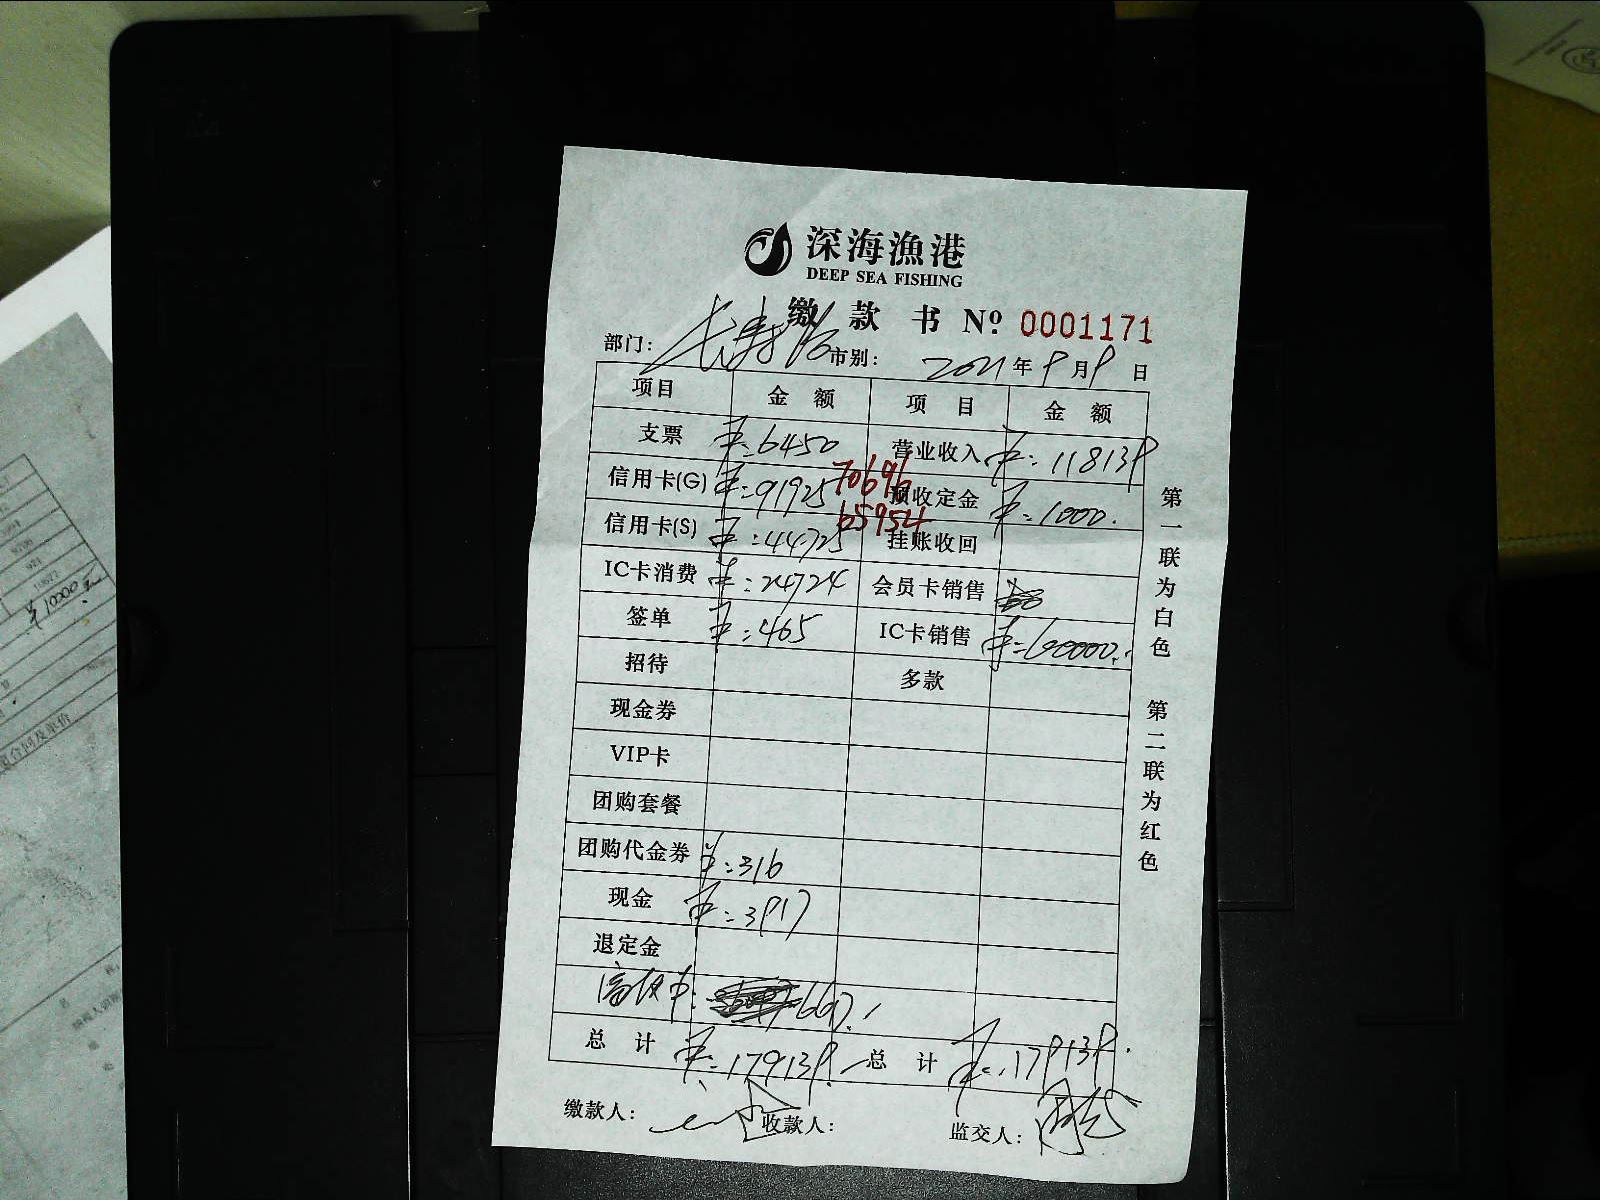 深海漁港
DEEP SEA FISHING
缴 款 书 Nº 0001171
部门: 长寿路 市别: 2021 年 9 月 9 日
项目 金 额 项 目 金 额
支票 ¥:6450 营业收入 ¥:118139
信用卡(G) ¥:91925 70696 预收定金 ¥:1000.
信用卡(S) ¥:44725 65954 挂账收回
IC卡消费 ¥:24724 会员卡销售
签单 ¥:465 IC卡销售 ¥:60000.
招待 多款
现金券
VIP卡
团购套餐
团购代金券 ¥:316
现金 ¥:3917
退定金
6617.
总 计 ¥:179139. 总 计 ¥:179139.
缴款人: 收款人: 监交人:
第一联为白色 第二联为红色